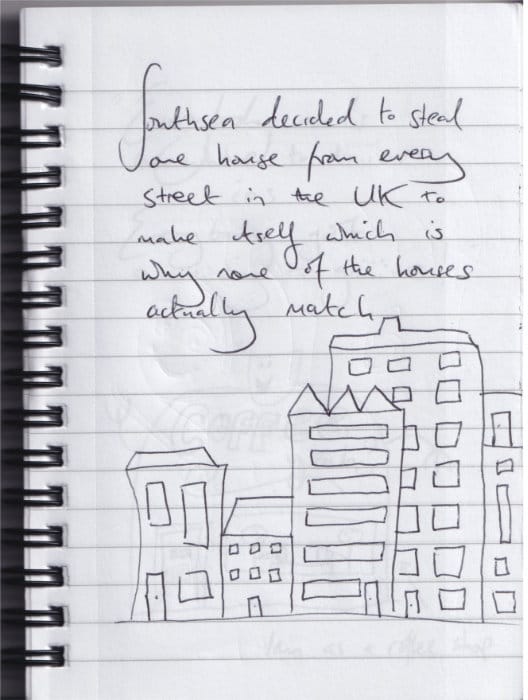 Southsea decided to steal
one house from every
street in the UK to
make itself which is
why none of the houses
actually match
COFFEE
as a coffee shop